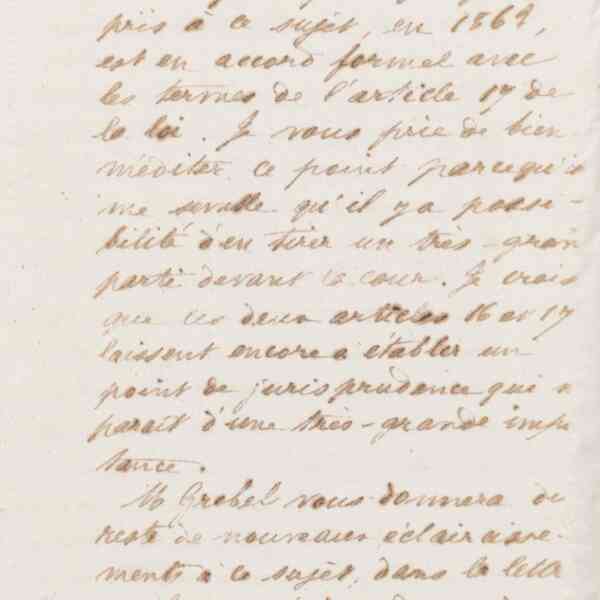 pris à ce sujet, en 1869,
est en accord formel avec
les termes de l'article 17 de
la loi. Je vous prie de bien
méditer ce point parcequ'il
me semble qu'il y a possi-
bilité d'en tirer un très-gran
parti devant la cour. Je crois
que ces deux articles 16 et 17
laissent encore à établir un
point de jurisprudence qui
parait d'une très-grande imp
tance.
M Grebel vous donnera du
reste de nouveaux éclaircisse-
ments à ce sujet, dans la lettr